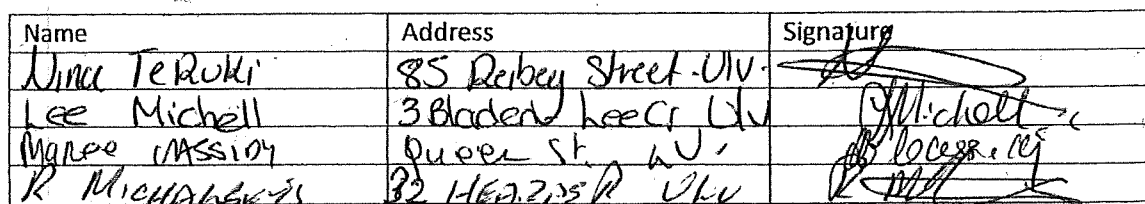 Name Address Signature
Nina TeRuki 85 Reibey Street. Ulv.
Lee Michell 3 Bladen Lee Cr Ulv Michell
Maree CASSIDY Queen St.
R 32 ULV R